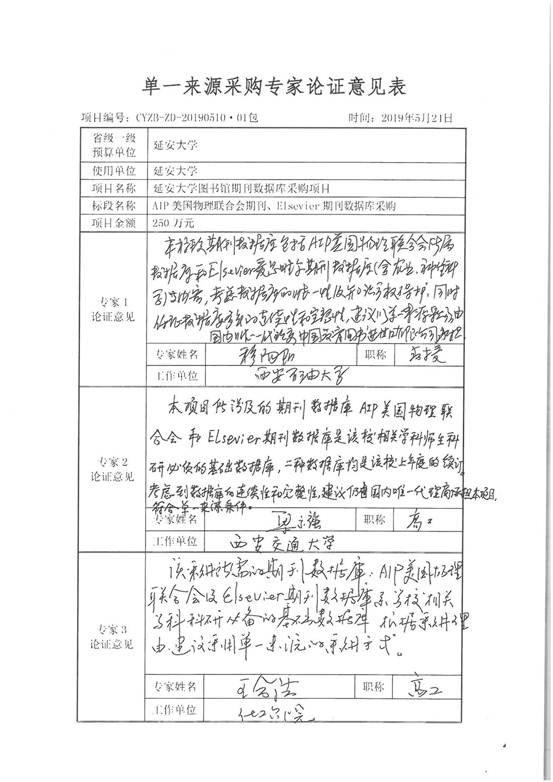 单一来源采购专家论证意见表
项目编号：CYZB-ZD-20190510·01包 时间：2019年5月21日
省级一级预算单位 延安大学
使用单位 延安大学
项目名称 延安大学图书馆期刊数据库采购项目
标段名称 AIP美国物理联合会期刊、Elsevier期刊数据库采购
项目金额 250万元
专家1论证意见
期刊数据库包括AIP美国物理联合会所属
数据库和Elsevier 期刊数据库
考虑数据库的唯一性 同时
保证数据库 的连续性和完整性，建议 单一来源
国内唯一代理商中国 图书进出口 公司
专家姓名 职称 教授
工作单位 西安石油大学
专家2论证意见
本项目所涉及的期刊数据库AIP美国物理联
合会和Elsevier期刊数据库是该校相关学科师生科
研必备的基础数据库，二种数据库均是该校上年度的续订，
考虑到数据库的连续性和完整性，建议仍由国内唯一代理商承担本项目，
符合单一来源条件。
专家姓名 梁 强 职称 高工
工作单位 西安交通大学
专家3论证意见
该采购所需的期刊数据库：AIP美国物理
联合会及Elsevier期刊数据库系学校相关
学科科研必备的基础数据库 根据采购理
由，建议采用单一来源的采购方式。
专家姓名 王 浩 职称 高工
工作单位